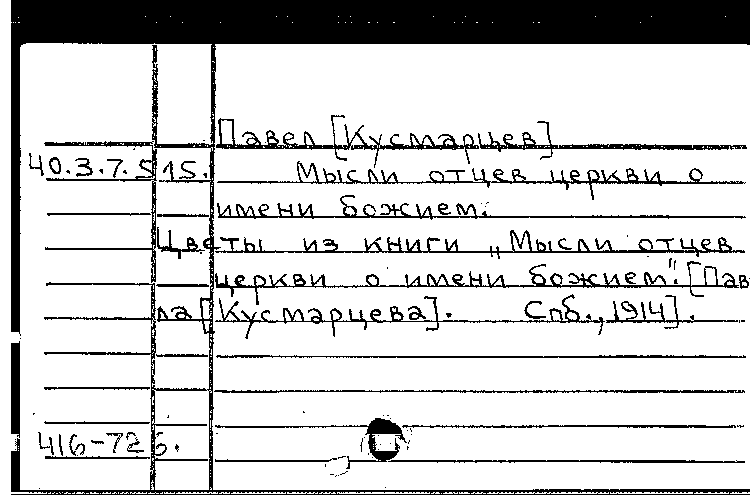 Павел [Кусмарцев]
40.3.7.515. Мысли отцев церкви о
имени божием.
Цветы из книги „Мысли отцев
церкви о имени божием". [Пав
ла [Кусмарцева]. Спб., 1914].
416-726.